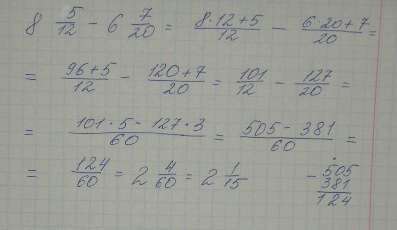 8 5/12 − 6 7/20 = (8·12+5)/12 − (6·20+7)/20 =
= (96+5)/12 − (120+7)/20 = 101/12 − 127/20 =
= (101·5−127·3)/60 = (505−381)/60 =
= 124/60 = 2 4/60 = 2 1/15
− 505
381
124